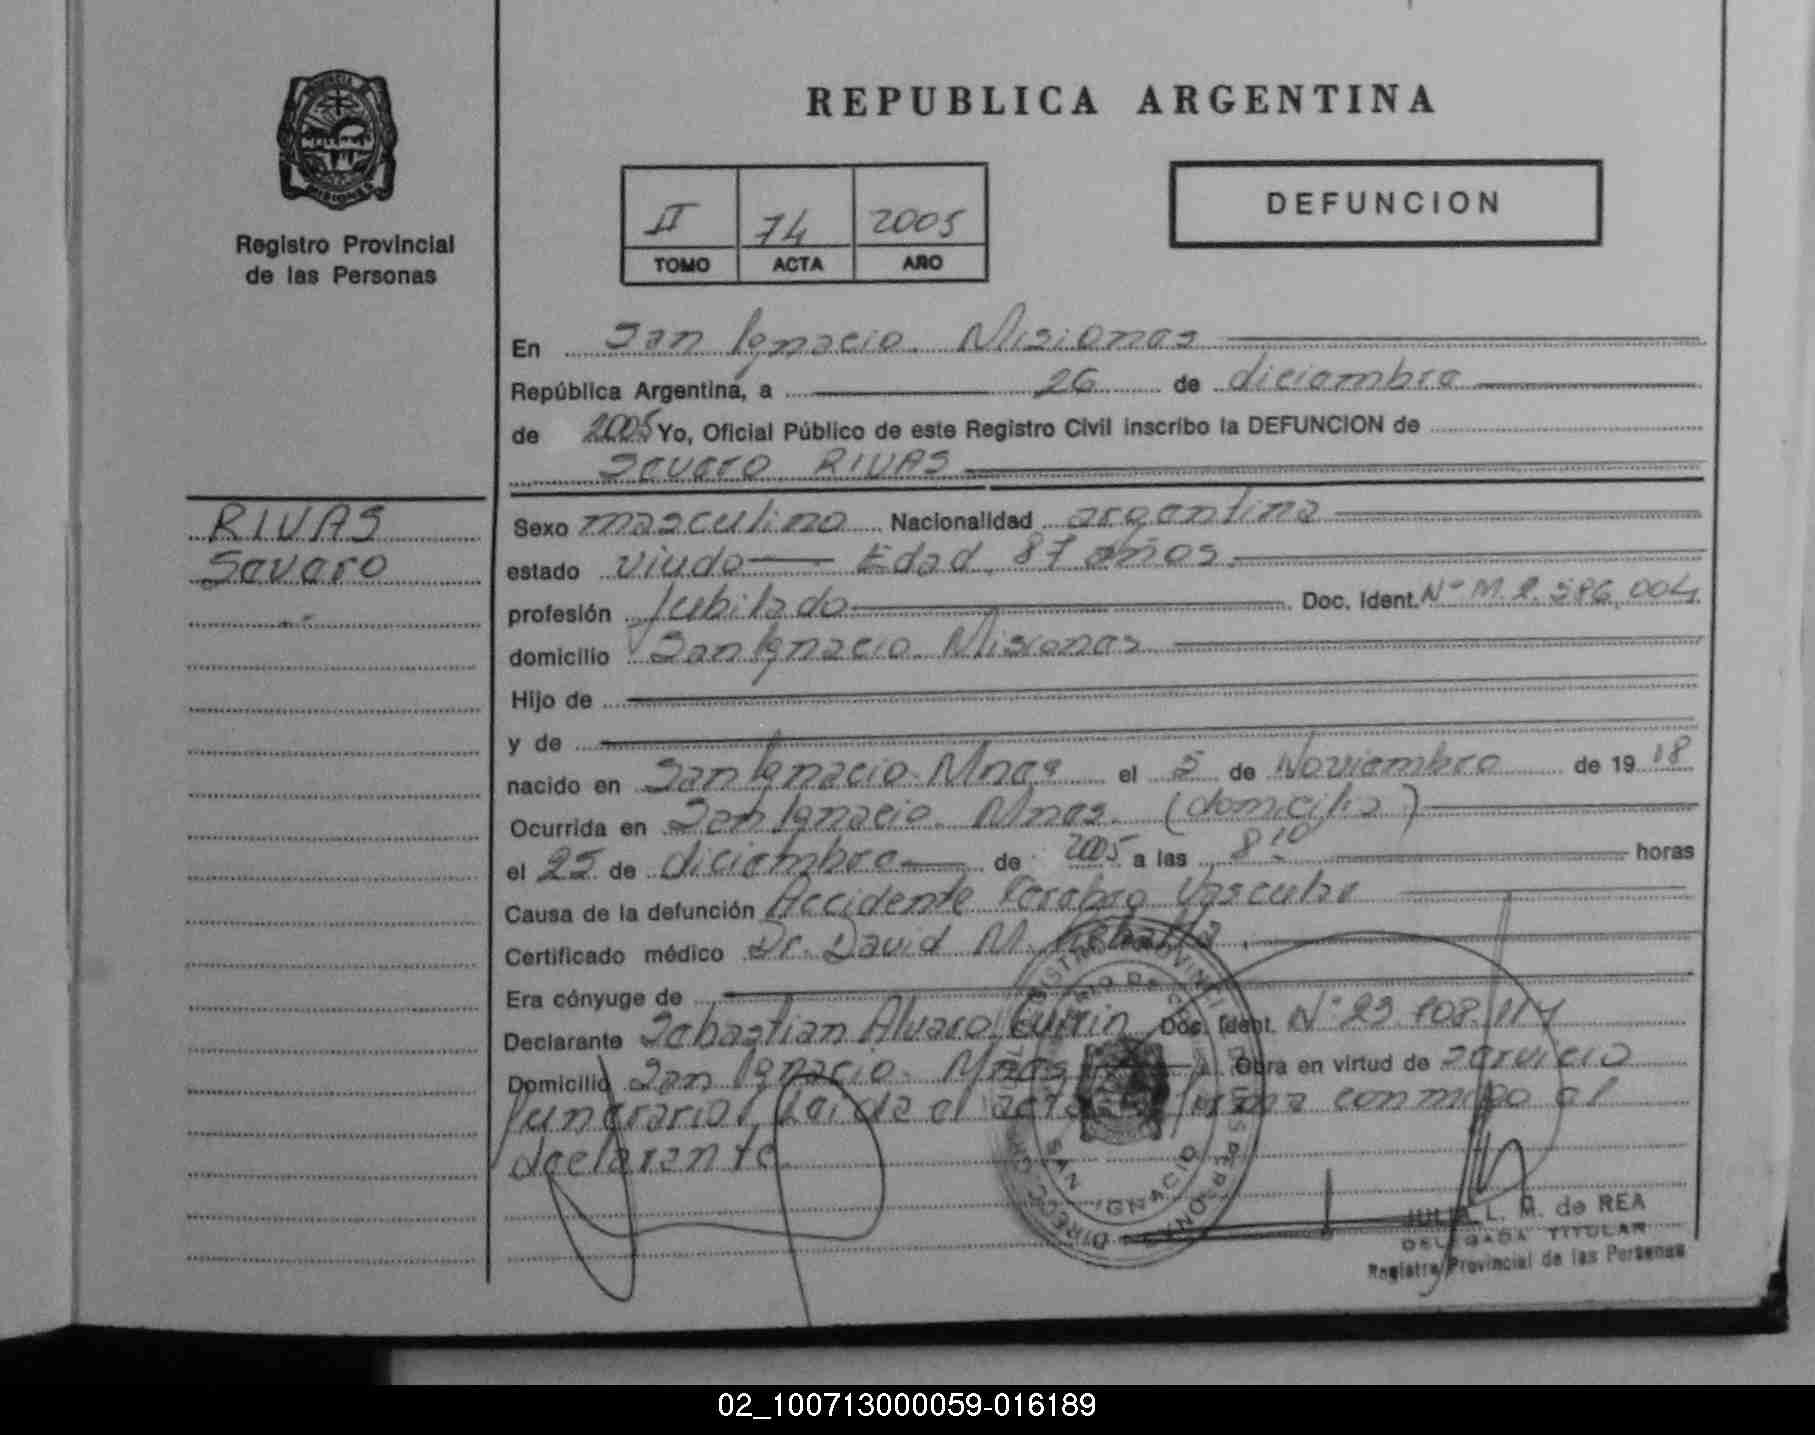 PROVINCIA DE
MISIONES
Registro Provincial
de las Personas
REPUBLICA ARGENTINA
II 74 2005
TOMO ACTA AÑO
DEFUNCION
En San Ignacio Misiones
República Argentina, a 26 de diciembre
de 2005 Yo, Oficial Público de este Registro Civil inscribo la DEFUNCION de
Severo RIVAS
RIVAS
Severo
Sexo masculino Nacionalidad argentina
estado viudo Edad 87 años
profesión Jubilado Doc. Ident. Nº M. 586.004
domicilio San Ignacio Misiones
Hijo de
y de
nacido en San Ignacio Mnes el 5 de Noviembre de 19 18
Ocurrida en San Ignacio Mnes. (domicilio)
el 25 de diciembre de 2005 a las 8 10 horas
Causa de la defunción Accidente Cerebro Vascular
Certificado médico Dr. David M.
Era cónyuge de
Declarante Sebastian Alvaro Doc. Ident. Nº 23.108.117
Domicilio San Ignacio Mnes Obra en virtud de servicio
funerario, Leida el acta firma conmigo el
declarante
SAN IGNACIO
JULIA L. M. de REA
DELEGADA TITULAR
Registro Provincial de las Personas
02_100713000059-016189